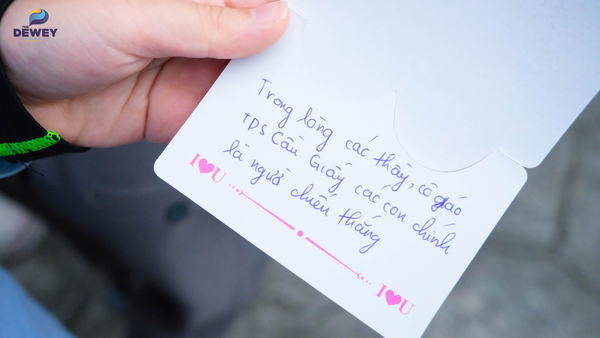 THE
DEWEY
Trong lòng các thầy, cô giáo
TDS Cầu Giấy các con chính
là người chiến thắng
I♥U
I♥U